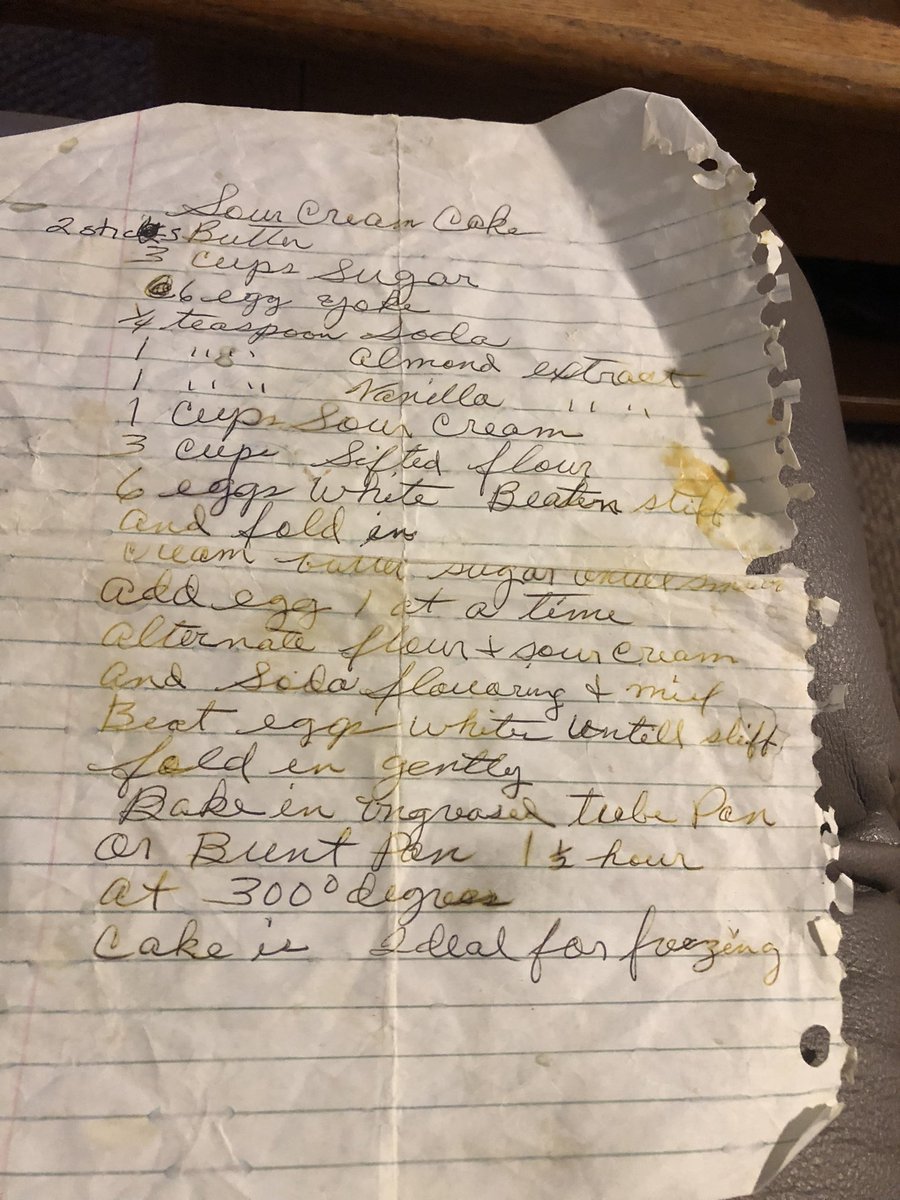 Sour Cream Cake
2 sticks Butter
3 cups Sugar
6 egg yoke
1/4 teaspoon Soda
1 " " " Almond extract
1 " " " Vanilla " " "
1 Cups Sour Cream
3 cups Sifted flour
6 eggs White Beaten stiff
and fold in
Cream butter sugar untill smooth
add egg 1 at a time
alternate flour + sour cream
and Soda flavoring + mix
Beat eggs white untill stiff
fold in gently
Bake in ungreased tube Pan
Or Bunt Pan 1 1/2 hour
at 300° degrees
Cake is Ideal for freezing